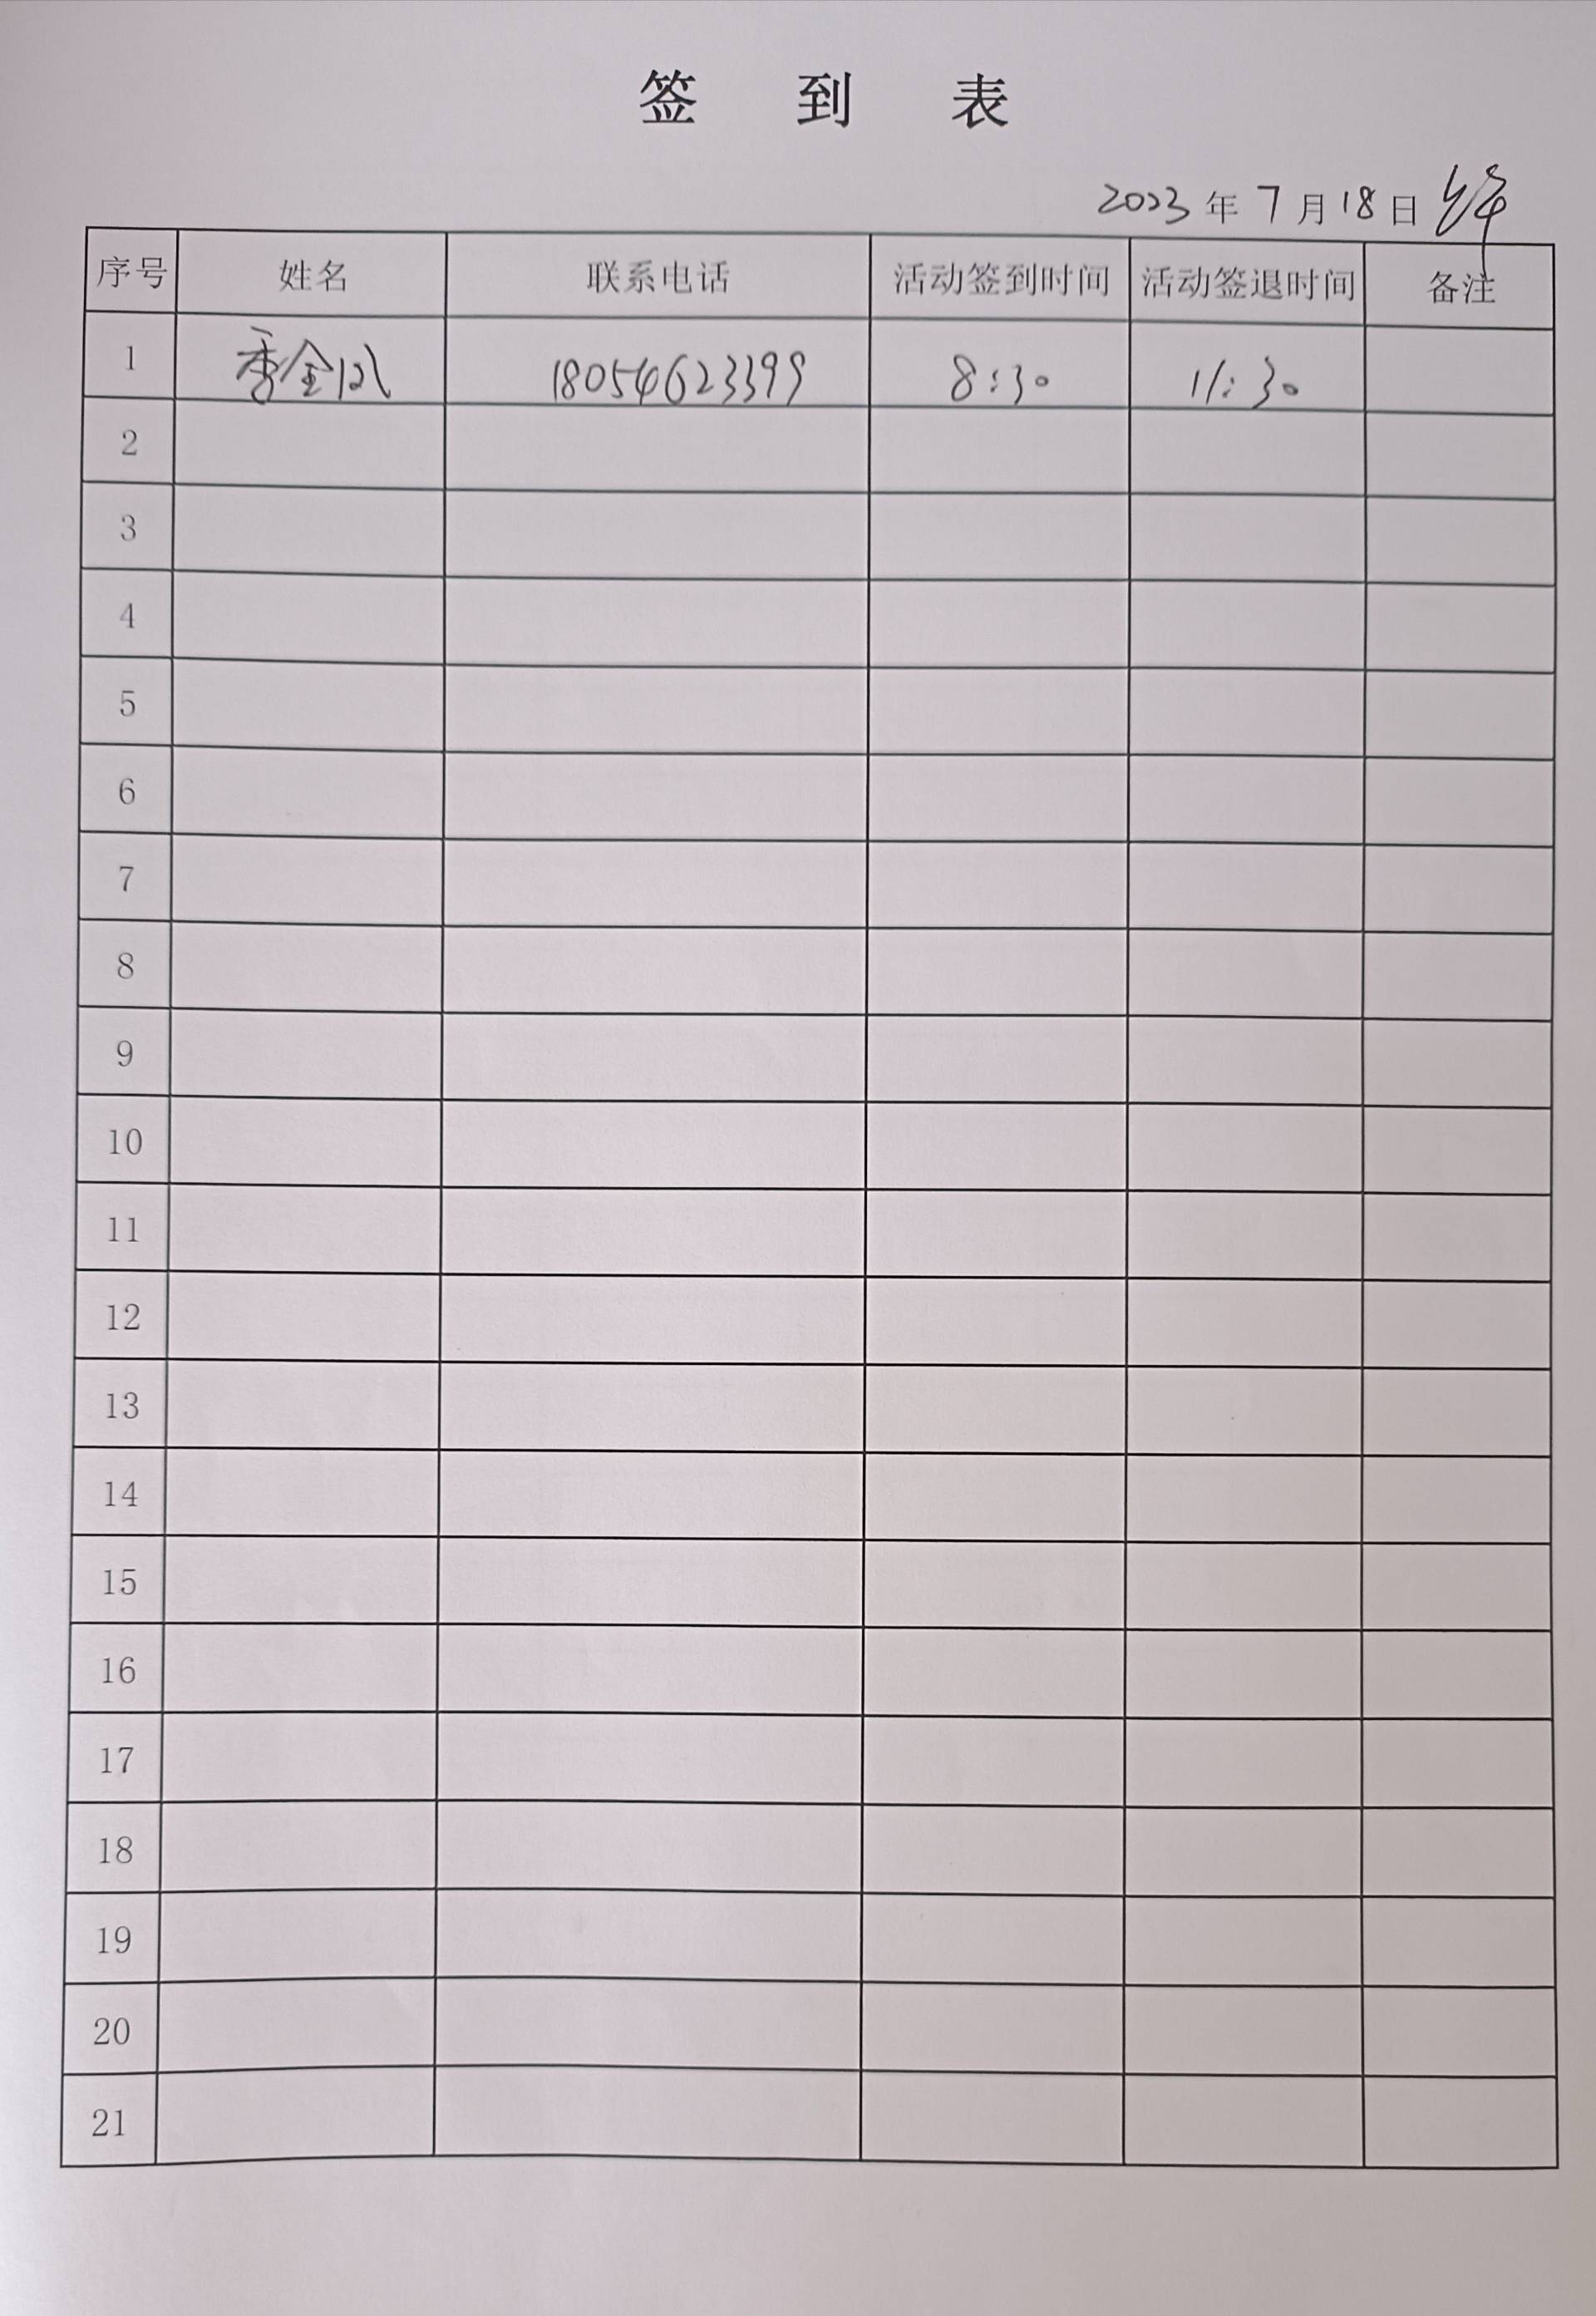 签 到 表
2023 年 7 月 18 日
序号 姓名 联系电话 活动签到时间 活动签退时间 备注
1 18054623399 8:30 11:30
2
3
4
5
6
7
8
9
10
11
12
13
14
15
16
17
18
19
20
21